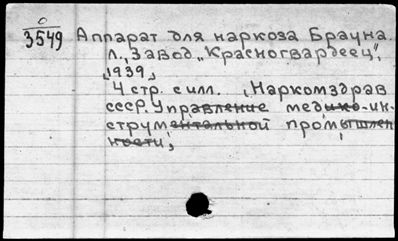 0
3549
Аппарат для наркоза Брауна.
Л., Завод „Красногвардеец",
1939,
4 стр. с илл. (Наркомздрав
СССР. Управление медико-ин-
струментальной промышлен
ности,